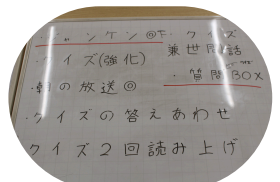 ・ジャンケン◎キ
・クイズ
兼世間話
クイズ(強化)
・質問BOX
・朝の放送◎
・クイズの答えあわせ
クイズ2回読み上げ